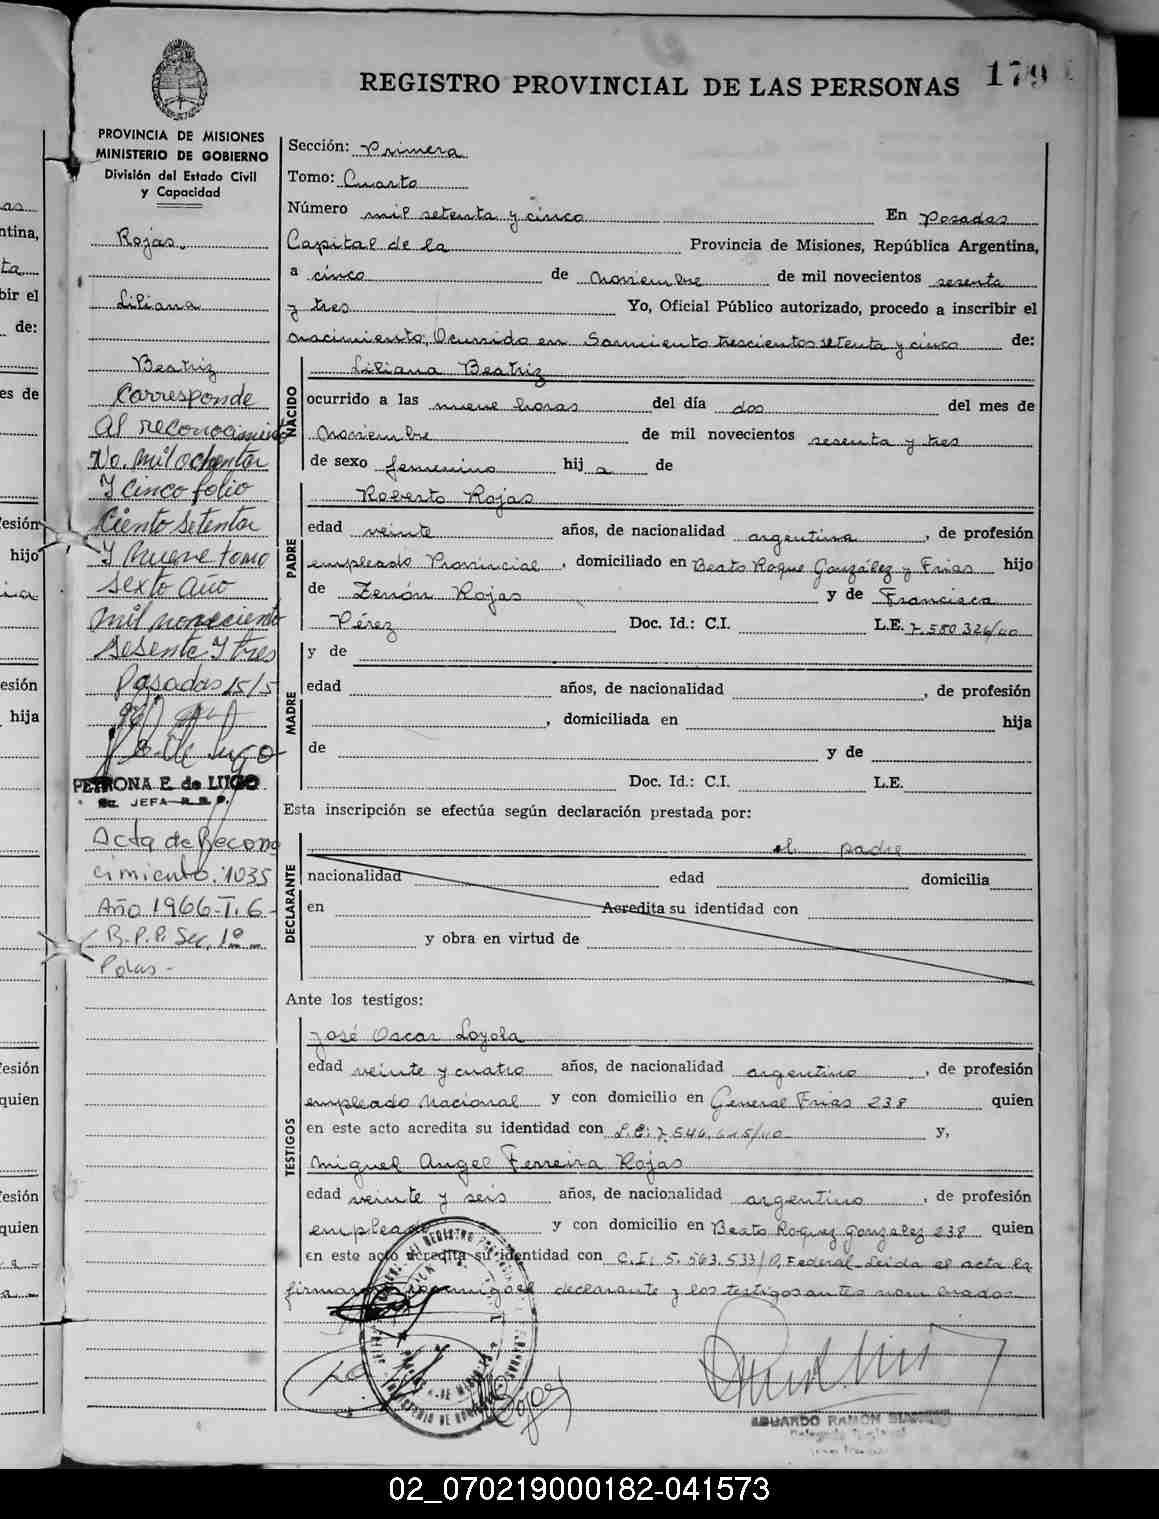 REGISTRO PROVINCIAL DE LAS PERSONAS 179
PROVINCIA DE MISIONES
MINISTERIO DE GOBIERNO
División del Estado Civil
y Capacidad
Rojas
Liliana
Beatriz
Corresponde
Al reconocimiento
No. mil ochenta
Y cinco folio
Ciento setenta
Y nueve tomo
sexto año
mil novecientos
sesenta Y tres
Posadas 15/5
PETRONA E. de LUGO
JEFA R.P.P.
Acta de Recono
cimiento. 1035
Año 1966-T. 6-
R.P.P. Sec. 1º
Pdas-
Sección: Primera
Tomo: Cuarto
Número mil setenta y cinco En Posadas
Capital de la Provincia de Misiones, República Argentina,
a cinco de noviembre de mil novecientos sesenta
y tres Yo, Oficial Público autorizado, procedo a inscribir el
nacimiento; Ocurrido en Sarmiento trescientos setenta y cinco de:
NACIDO
Liliana Beatriz
ocurrido a las nueve horas del día dos del mes de
noviembre de mil novecientos sesenta y tres
de sexo femenino hij a de
PADRE
Roberto Rojas
edad veinte años, de nacionalidad argentina, de profesión
empleado Provincial, domiciliado en Beato Roque González y Frias hijo
de Zenón Rojas y de Francisca
Pérez Doc. Id.: C.I. L.E. 7.580.326/40
MADRE
y de
edad años, de nacionalidad , de profesión
, domiciliada en hija
de y de
Doc. Id.: C.I. L.E.
Esta inscripción se efectúa según declaración prestada por:
DECLARANTE
el padre
nacionalidad edad domicilia
en Acredita su identidad con
y obra en virtud de
Ante los testigos:
TESTIGOS
José Oscar Loyola
edad veinte y cuatro años, de nacionalidad argentino, de profesión
empleado Nacional y con domicilio en General Frias 238 quien
en este acto acredita su identidad con L.E: 7.546.615/40 y,
Miguel Angel Ferreira Rojas
edad veinte y seis años, de nacionalidad argentino, de profesión
empleado y con domicilio en Beato Roquez Gonzalez 238 quien
en este acto acredita su identidad con C.I: 5.563.533/P. Federal-Leida el acta la
firman conmigo el declarante y los testigos antes nombrados
Rojas
EDUARDO RAMON
02_070219000182-041573